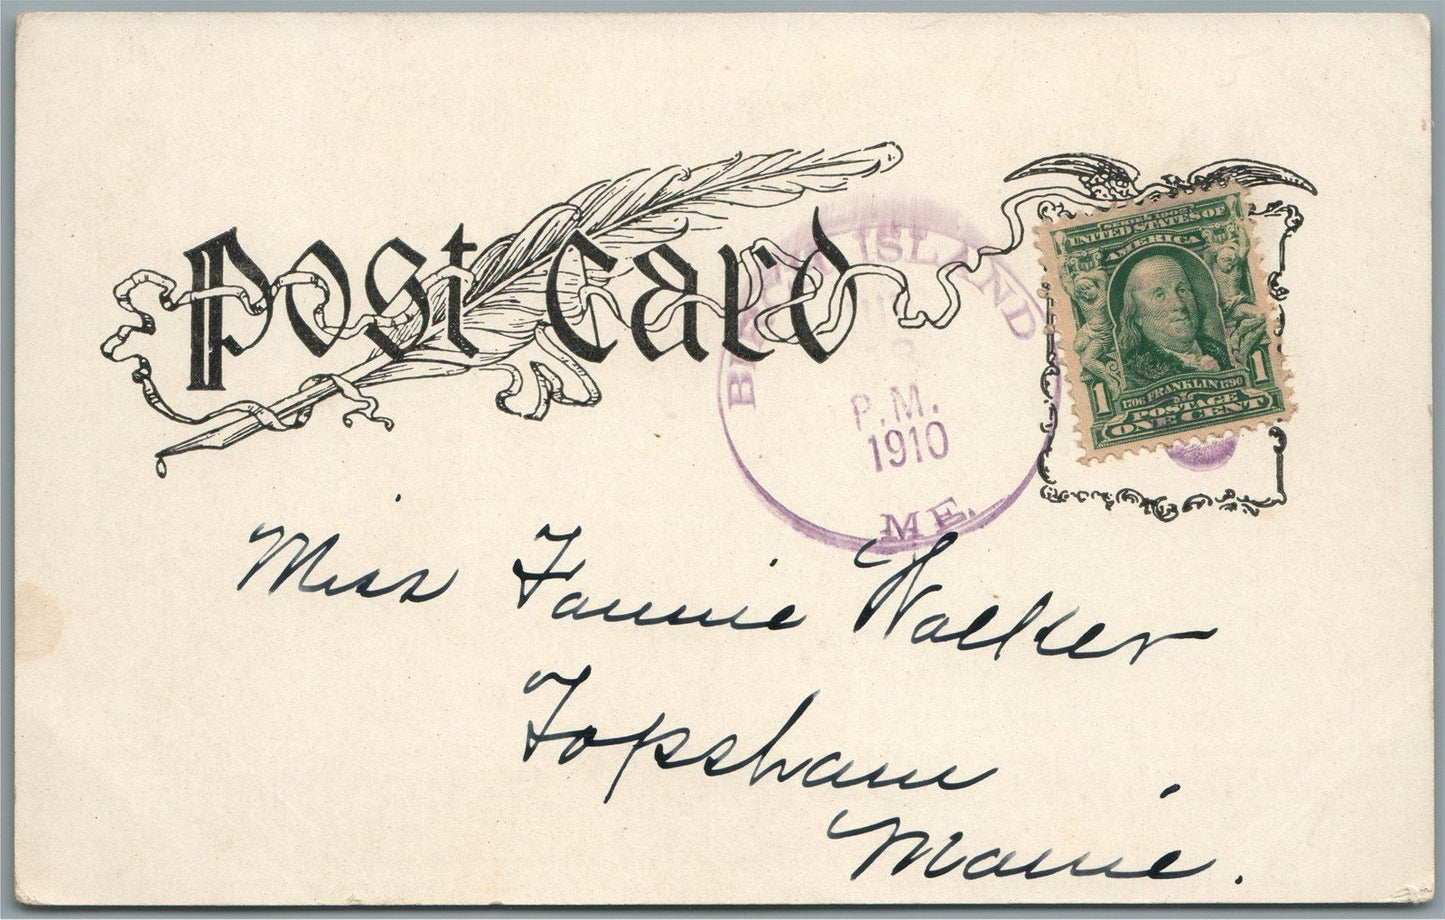 Post Card
ISLAND
P.M.
1910
ME.
SERIES 1902
UNITED STATES OF
AMERICA
1706 FRANKLIN 1790
1 1
POSTAGE
ONE CENT
Miss Fannie Walker
Topsham
Maine.